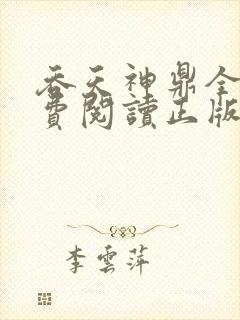 吞天神鼎全
費閱讀正版
李雲萍